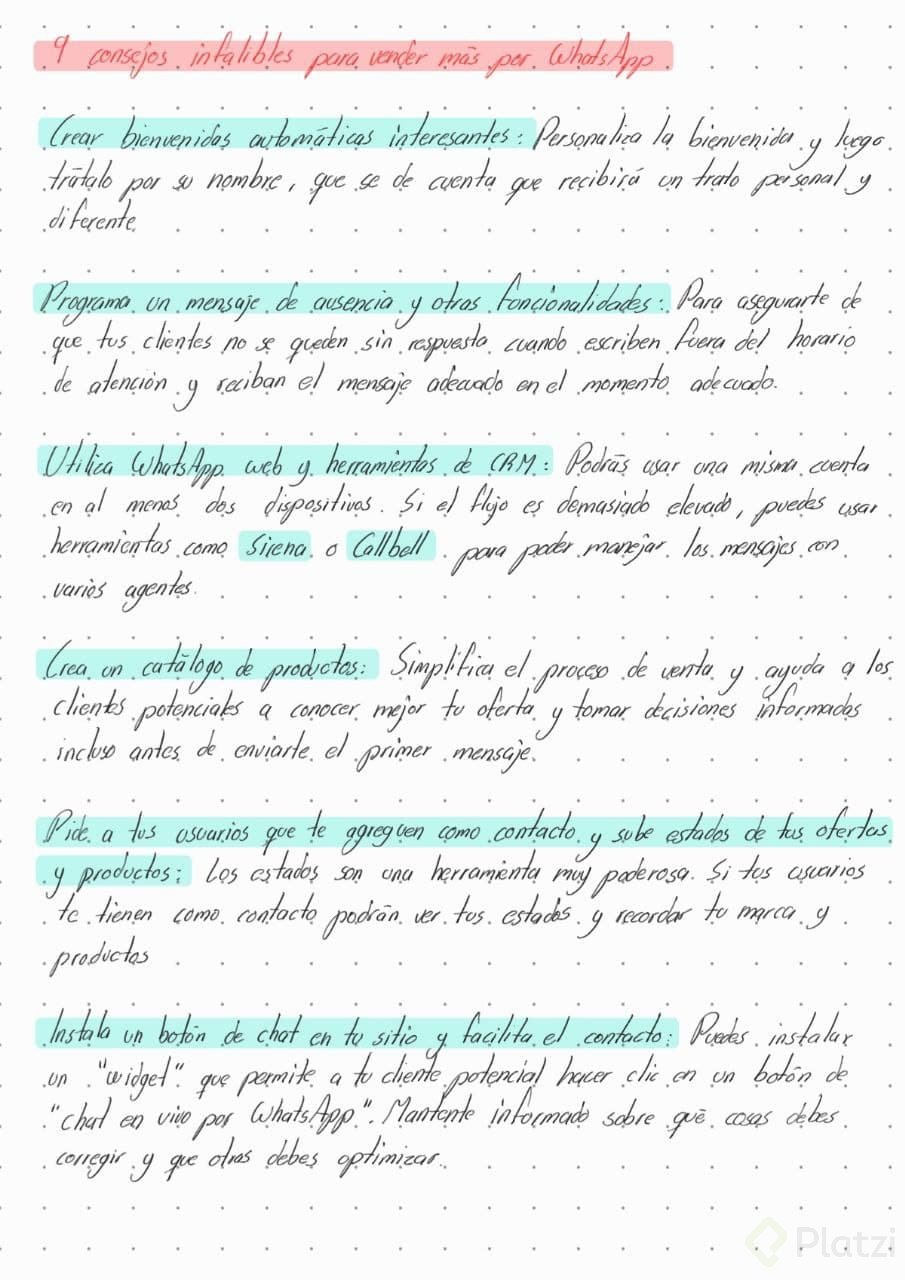 9 consejos infalibles para vender más por WhatsApp
Crear bienvenidas automáticas interesantes: Personaliza la bienvenida y luego
trátalo por su nombre, que se de cuenta que recibirá un trato personal y
diferente
Programa un mensaje de ausencia y otras funcionalidades: Para asegurarte de
que tus clientes no se queden sin respuesta cuando escriben fuera del horario
de atención y reciban el mensaje adecuado en el momento adecuado.
Utiliza WhatsApp web y herramientas de CRM: Podrás usar una misma cuenta
en al menos dos dispositivos. Si el flujo es demasiado elevado, puedes usar
herramientas como Sirena o Callbell para poder manejar los mensajes con
varios agentes.
Crea un catálogo de productos: Simplifica el proceso de venta y ayuda a los
clientes potenciales a conocer mejor tu oferta y tomar decisiones informadas
incluso antes de enviarte el primer mensaje.
Pide a tus usuarios que te agreguen como contacto y sube estados de tus ofertas
y productos: Los estados son una herramienta muy poderosa. Si tus usuarios
te tienen como contacto podrán ver tus estados y recordar tu marca y
productos
Instala un botón de chat en tu sitio y facilita el contacto: Puedes instalar
un "widget" que permite a tu cliente potencial hacer clic en un botón de
"chat en vivo por WhatsApp". Mantente informado sobre qué cosas debes
corregir y que otras debes optimizar.
Platzi